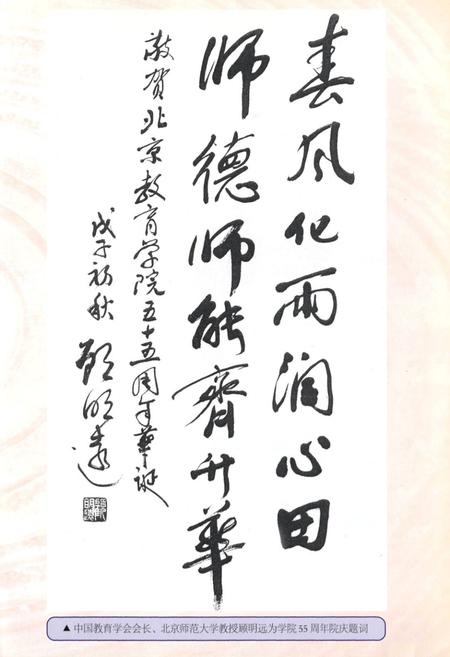 春风化雨润心田
师德师能齊升華
敬贺北京教育学院五十五周年華诞
戊子初秋 顾明远
▲ 中国教育学会会长、北京师范大学教授顾明远为学院 55 周年院庆题词